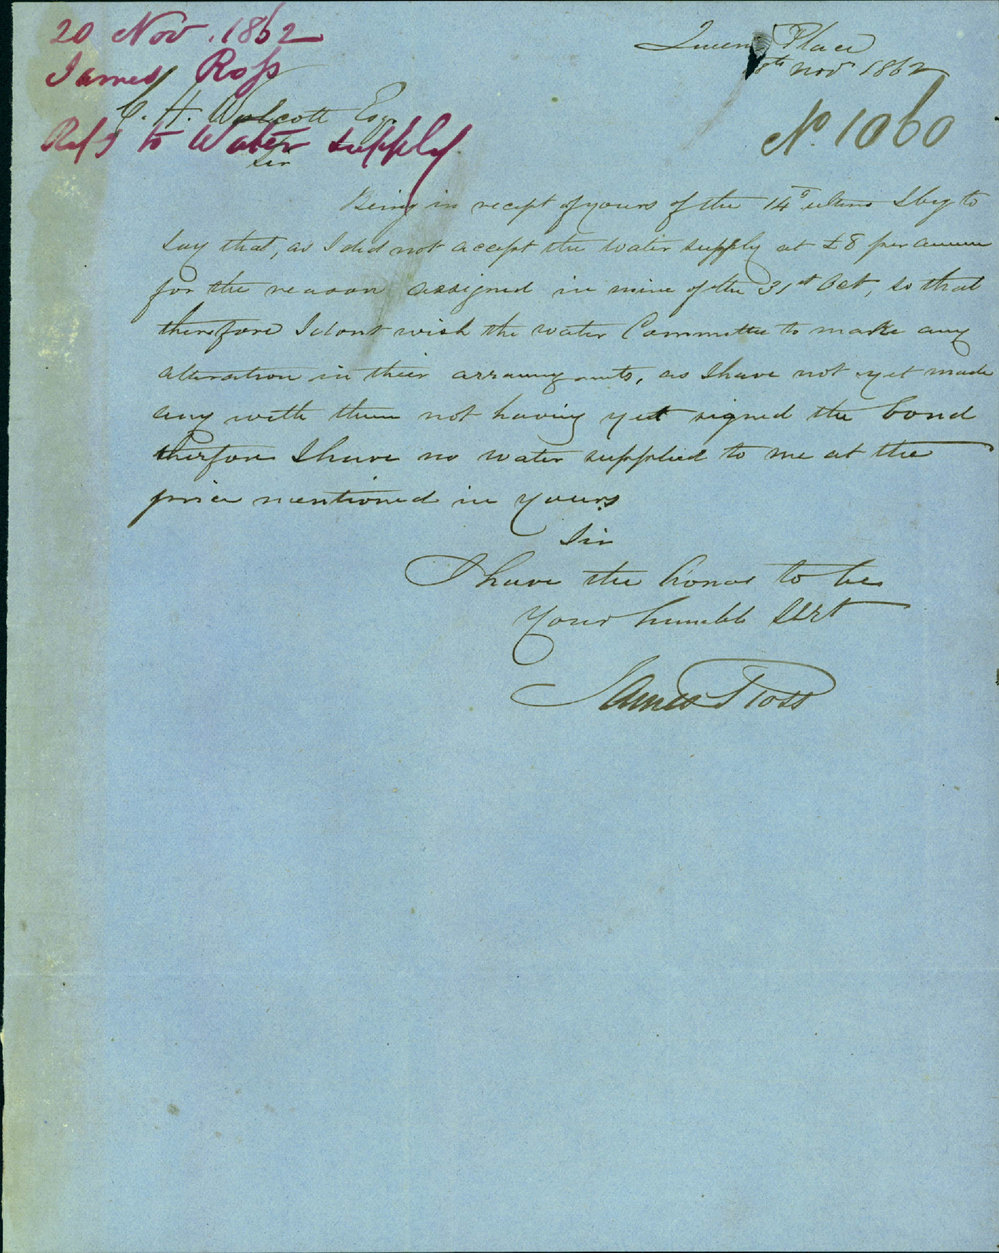 20 Nov. 1862
James Ross
Refs to Water supply
Queens Place
th Nov 1862
No. 1060
C. H. Woolcott Esq.
Sir
Being in recipt of yours of the 14th ultimo I beg to
say that, as I did not accept the water supply at £8 per annum
for the reason assigned in mine of the 31st Oct, so that
therefore I dont wish the water Committee to make any
alteration in their arrangments, as I have not yet made
any with them not having yet signed the bond
therfore I have no water supplied to me at the
price mentioned in yours
Sir
I have the honor to be
Your humble Sert
James Ross